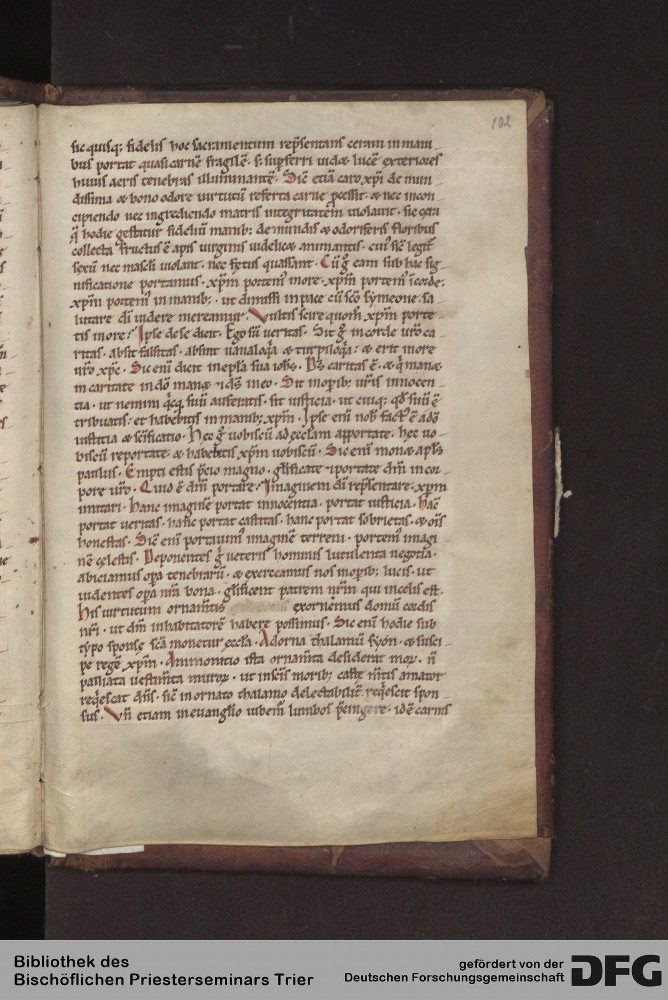 102
sic quisq; fidelis hoc sacramentum rep̄sentans ceram in mani
bus portat quasi carnē fragilē. s; sup̄ferri uidæ lucē exteriores
huius aeris tenebras illuminantē. Sic etiā caro xp̄i de mun
dissima & bono odore uirtutū referta carne p̄cessit. & nec incon
cipiendo nec ingrediendo matris integritatem̄ uiolauit. sic cera
q̄ hodie gestatur fideliū manib; de mundis & odoriferis floribus
collecta fructus ē apis uirginis uidelicæ animantis. cui' sic̄ legit̄
sexū nec masc̄li uiolant. nec fetus quassant. Cū g̊ eam sub hac sig
nificatione portamus. xp̄m portem' in ore. xp̄m portem' ī corde.
xp̄m portem' in manib;. ut dimissi in pace cū sc̄o symeone sa
lutare dī uidere mereamur. Vultis scire quom̊ xp̄m porte
tis in ore? Ipse de se dicit. Ego sū ueritas. Sit g̊ in corde ur̄o ca
ritas. absit falsitas. absint uaniloq̄a & turpiloq̄a: & erit in ore
ur̄o xp̄c. Sic enī dicit in ep̄la sua ioh̄s. D's caritas ē. & q̄ manæ
in caritate in dō manæ & ds̄ in eo. Sit in op̄ib; ur̄is innocen
tia. ut nemini q̄cq̄ suū auferatis. sit iusticia. ut cuiq; qd̄ suū ē
tribuatis. et habebitis in manib; xp̄m. Ipse enī nob̄ fact' ē a dō
iustitia & sc̄ificatio. Hec g̊ uobiscū ad eccl̄am apportate. hec uo
biscū reportate & habebitis xp̄m uobiscū. Sic enī monæ apl̄s
paulus. Empti estis p̄cio magno. gl̄ificate & portate dm̄ in cor
pore ur̄o. Quid ē dm̄ portare? Imaginem dī rep̄sentare. xp̄m
imitari. Hanc imaginē portat innocentia. portat iusticia. hanc
portat ueritas. hanc portat castitas. hanc portat sobrietas. & oīs
honestas. Sic enī portauim' imaginē terreni. portem' imagi
nē celestis. Deponentes g̊ ueteris hominis lutulenta negotia.
abiciamus op̄a tenebrarū. & exerceamus nos in op̄ib; lucis. ut
uidentes op̄a nr̄a bona. gl̄ificent patrem nr̄m qui in celis est.
His uirtutum ornam̄tis exornemus domū cordis
nr̄i. ut dm̄ inhabitatorē habere possimus. Sic enī hodie sub
typo sponse sc̄a monetur eccl̄a. Adorna thalamū syon. & susci
pe regē xp̄m. Ammonitio ista ornam̄ta desiderat morꝝ. n̄
palliata uestim̄ta murorꝝ. ut in sc̄īs morib; caste m̄tis amator
req̄escat dn̄s. sic̄ in ornato thalamo delectabilit̄ req̄escit spon
sus. Vn̄ etiam in euang̅lio iubem' lumbos p̄cingere. idē carnis
Bibliothek des
Bischöflichen Priesterseminars Trier
gefördert von der
Deutschen Forschungsgemeinschaft
DFG